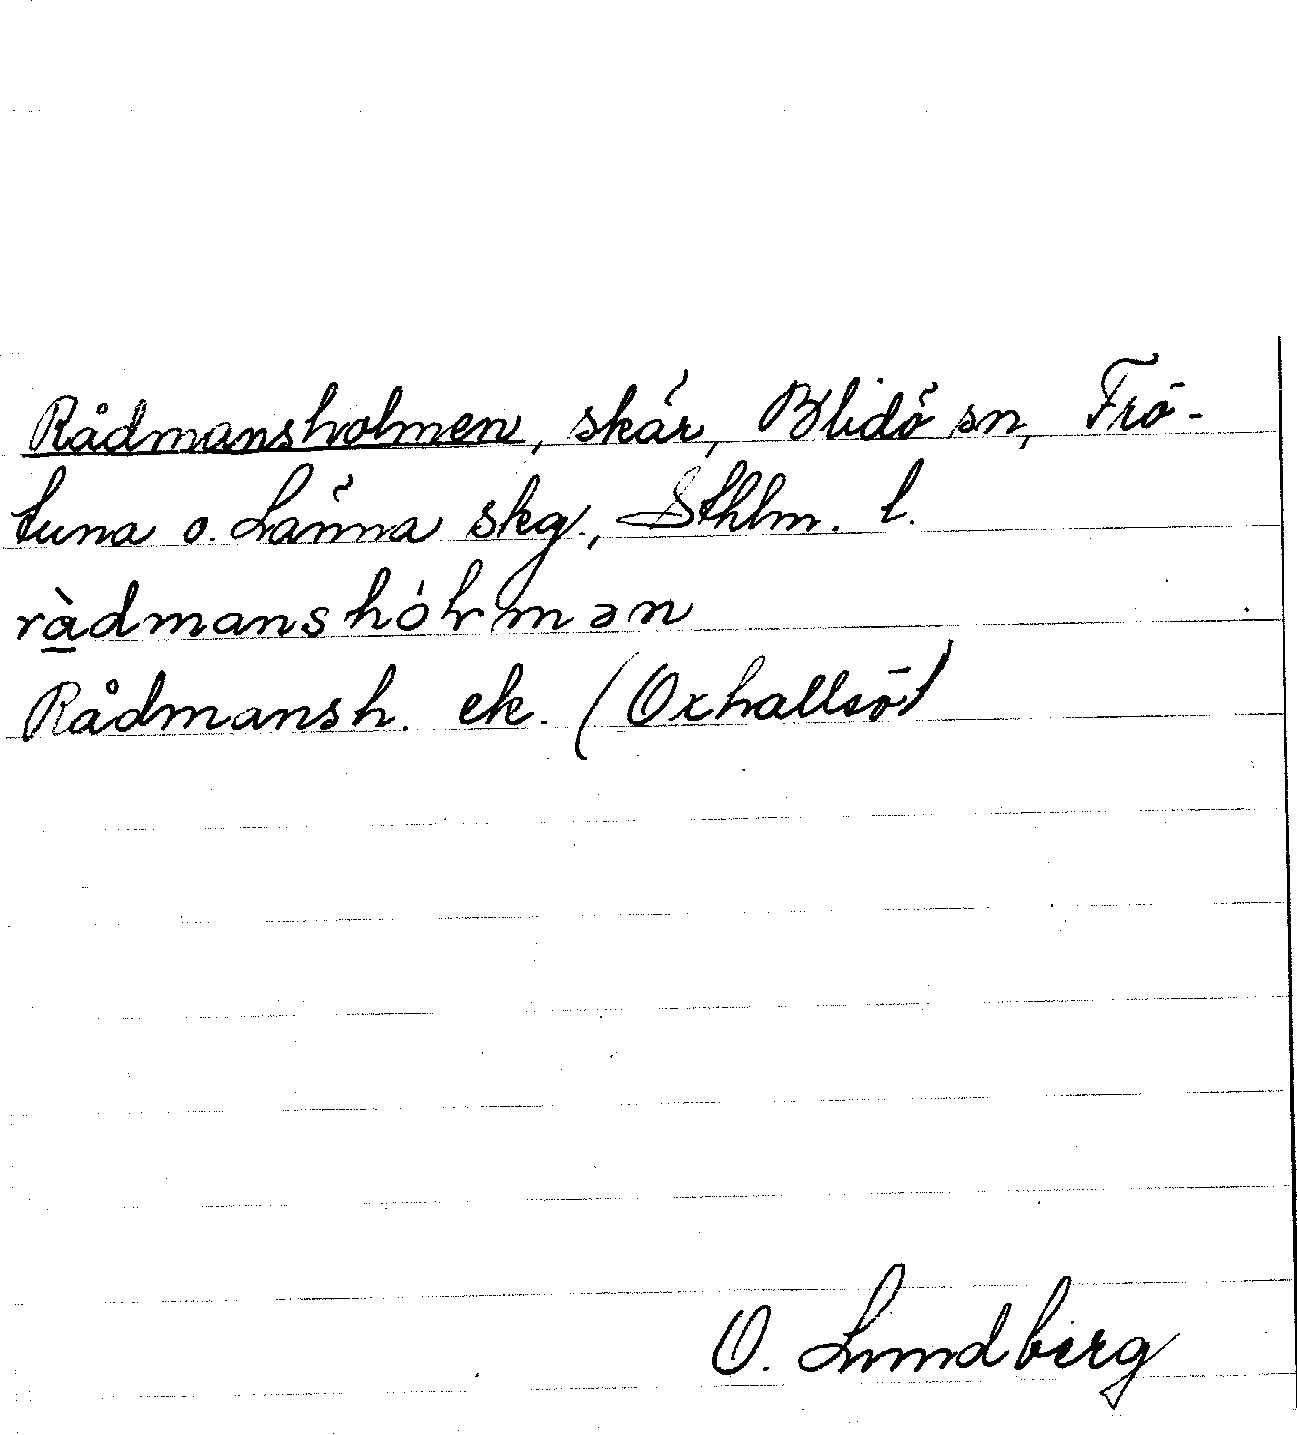 Rådmansholmen, skär, Blidö sn, Frö-
tuna o. Länna skg., Sthlm. l.
rà̲dmanshólmən
Rådmansh. ek. (Oxhallsö)
O. Lundberg